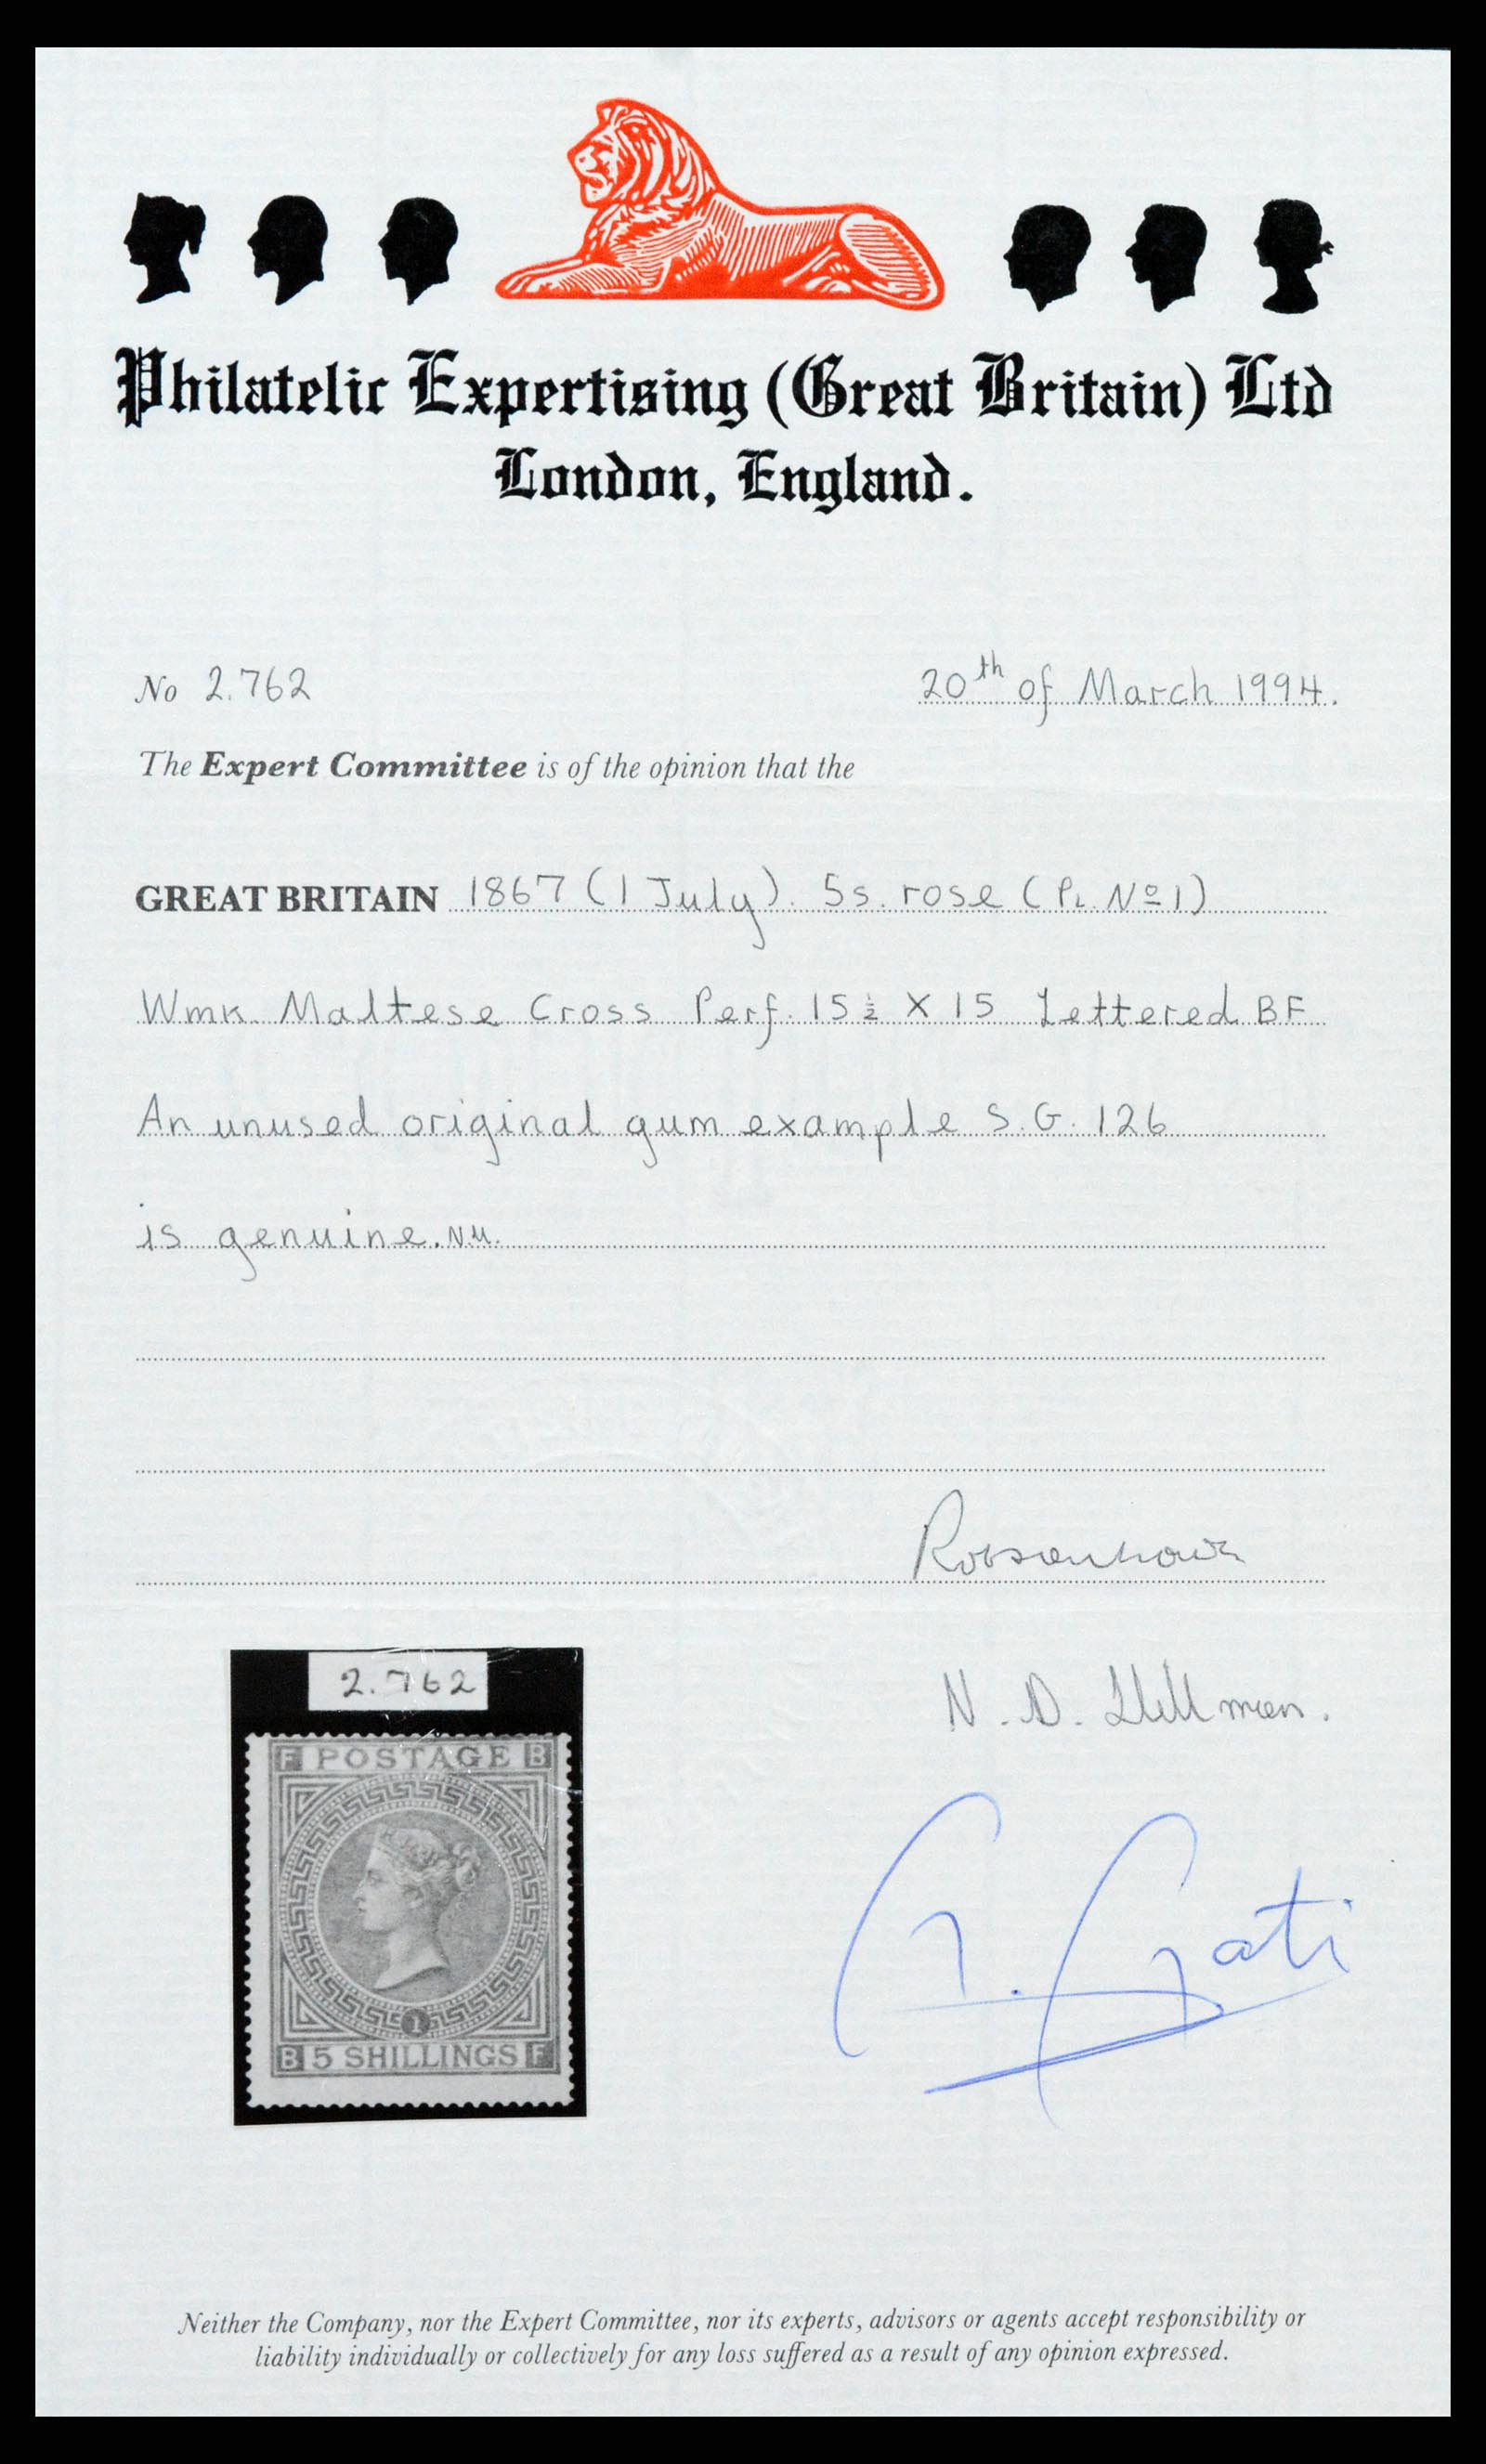 Philatelic Expertising (Great Britain) Ltd
London, England.
No 2.762
20th of March 1994.
The Expert Committee is of the opinion that the
GREAT BRITAIN 1867 (1 July). 5s. rose (PL. Nº 1)
Wmk. Maltese Cross Perf. 15½ X 15 Lettered BF
An unused original gum example S.G. 126
is genuine. N.U.
2.762
F POSTAGE B
1
B 5 SHILLINGS F
N. D.
Neither the Company, nor the Expert Committee, nor its experts, advisors or agents accept responsibility or
liability individually or collectively for any loss suffered as a result of any opinion expressed.